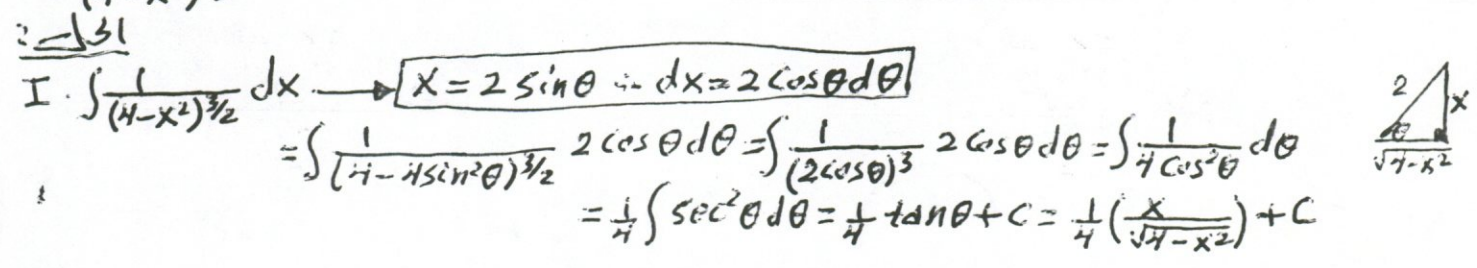 31
I. ∫ 1/(4-x²)^3/2 dx → x = 2 sinθ ∴ dx = 2 cosθ dθ
= ∫ 1/(4-4sin²θ)^3/2 2 cosθ dθ = ∫ 1/(2cosθ)³ 2 cosθ dθ = ∫ 1/4cos²θ dθ
= 1/4 ∫ sec²θ dθ = 1/4 tanθ + C = 1/4 (x/√4-x²) + C
2
x
θ
√4-x²